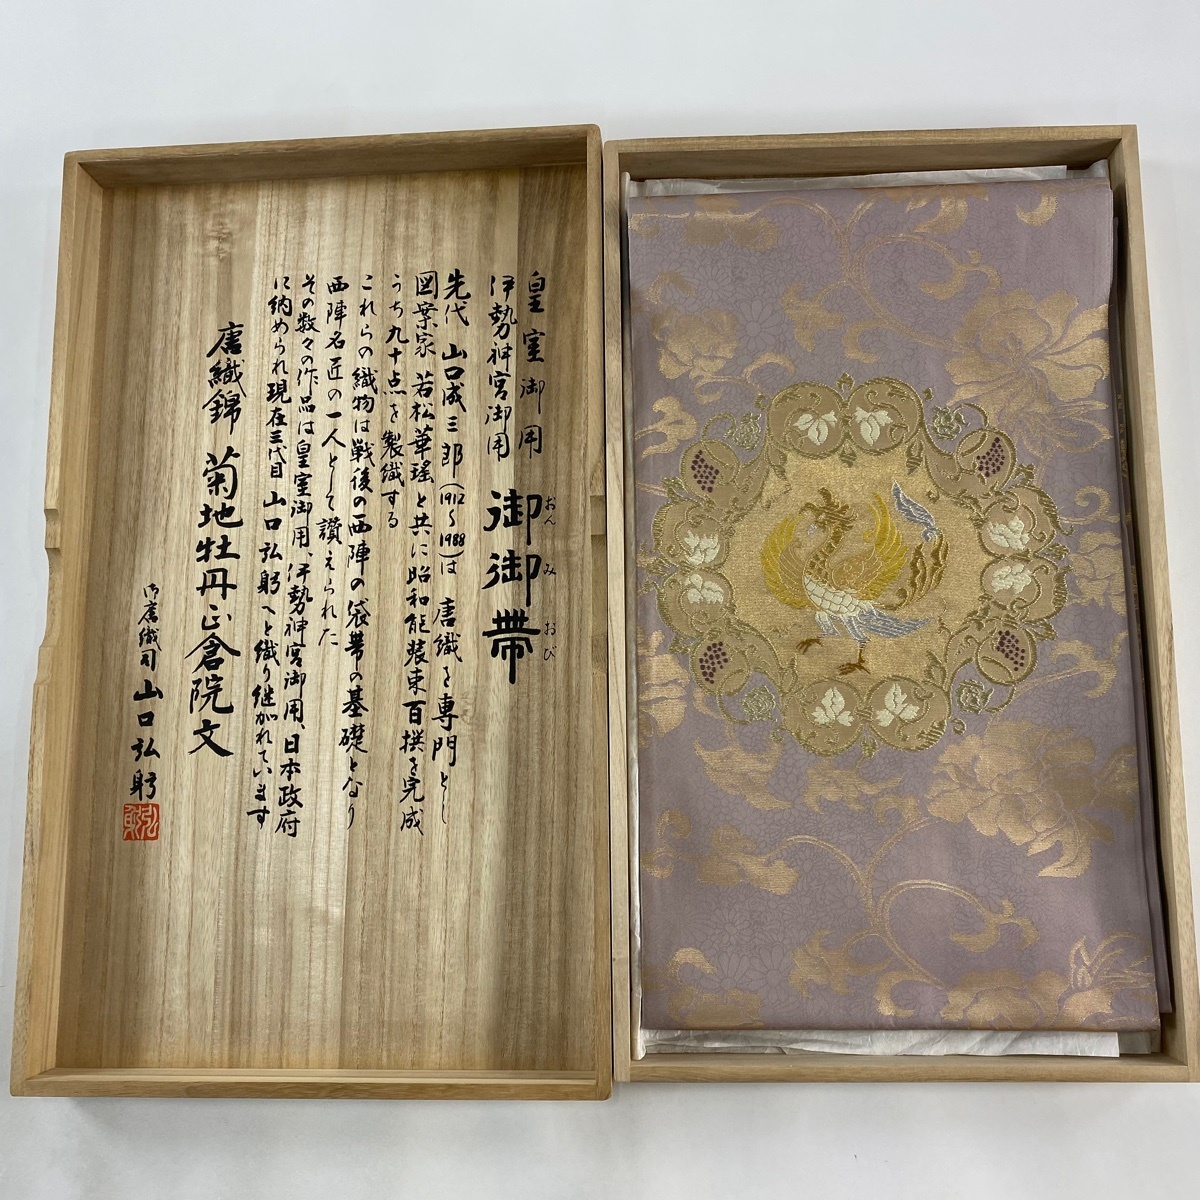 皇室御用
伊勢神宮御用
御御帯
おん み おび
先代 山口成三郎(1912〜1988)は 唐織を専門とし
図案家 若松華瑶と共に昭和能装束百撰を完成
うち九十点を製織する
これらの織物は戦後の西陣の袋帯の基礎となり
西陣名匠の一人として讃えられた
その数々の作品は皇室御用、伊勢神宮御用、日本政府
に納められ現在三代目 山口弘躬へと織り継がれています
唐織錦 菊地牡丹正倉院文
御唐織司 山口弘躬
弘躬